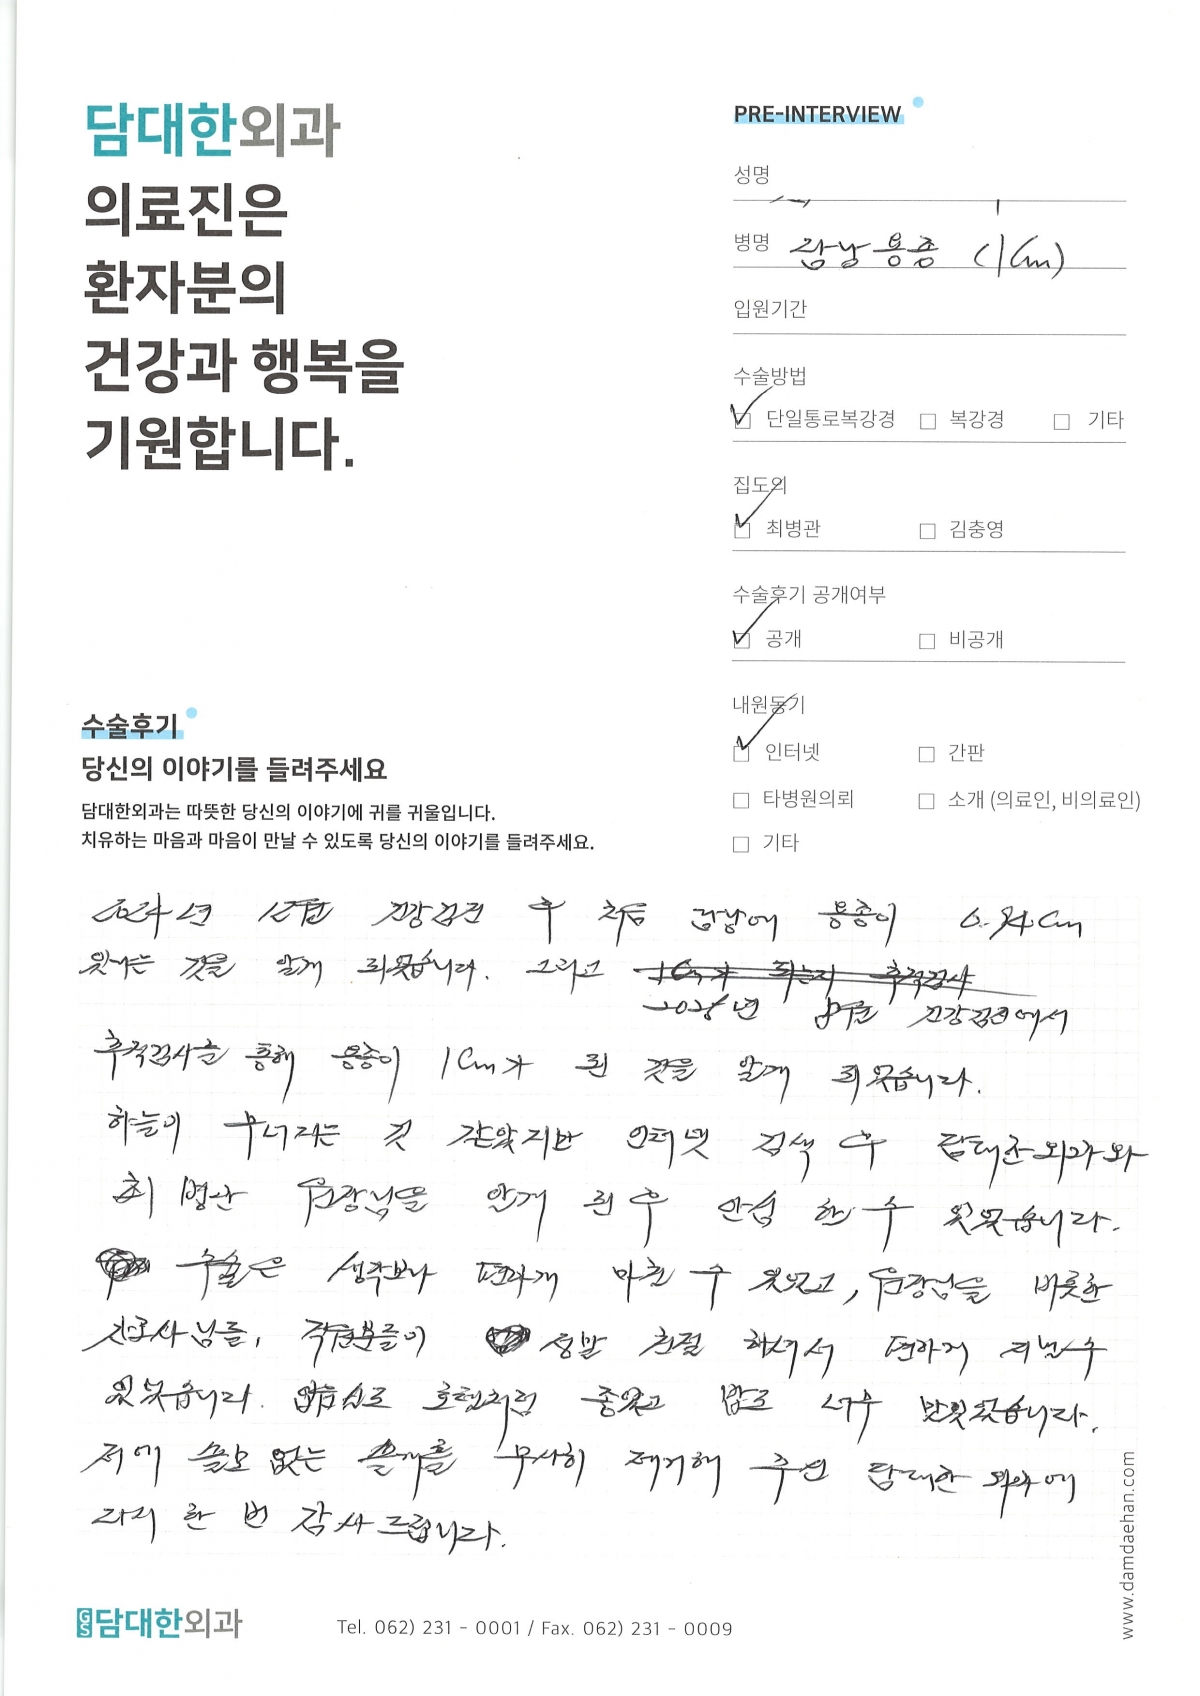 담대한외과
의료진은
환자분의
건강과 행복을
기원합니다.
PRE-INTERVIEW
성명
병명 담낭용종 (1Cm)
입원기간
수술방법
단일통로복강경 복강경 기타
집도의
최병관 김충영
수술후기 공개여부
공개 비공개
내원동기
인터넷 간판
타병원의뢰 소개 (의료인, 비의료인)
기타
수술후기
당신의 이야기를 들려주세요
담대한외과는 따뜻한 당신의 이야기에 귀를 귀울입니다.
치유하는 마음과 마음이 만날 수 있도록 당신의 이야기를 들려주세요.
2024년 12월 건강검진 후 처음 담낭에 용종이 0.94Cm
있다는 것을 알게 되었습니다. 그리고 1Cm가 되는지 추적검사
건강검진에서
추적검사를 통해 용종이 1Cm가 된 것을 알게 되었습니다.
하늘이 무너지는 것 같았지만 인터넷 검색 후 담대한외과와
최병관 원장님을 알게 된 후 안심 할 수 있었습니다.
수술은 생각보다 편하게 마칠 수 있었고, 원장님을 비롯한
간호사님들, 직원분들이 정말 친절 하셔서 편하게 지낼 수
있었습니다. 호텔처럼 좋았고 밥도 너무 맛있었습니다.
저에 쓸모 없는 쓸개를 무사히 제거해 주신 담대한 외과에
다시 한 번 감사드립니다.
GS 담대한외과
Tel. 062) 231 - 0001 / Fax. 062) 231 - 0009
www.damdaehan.com